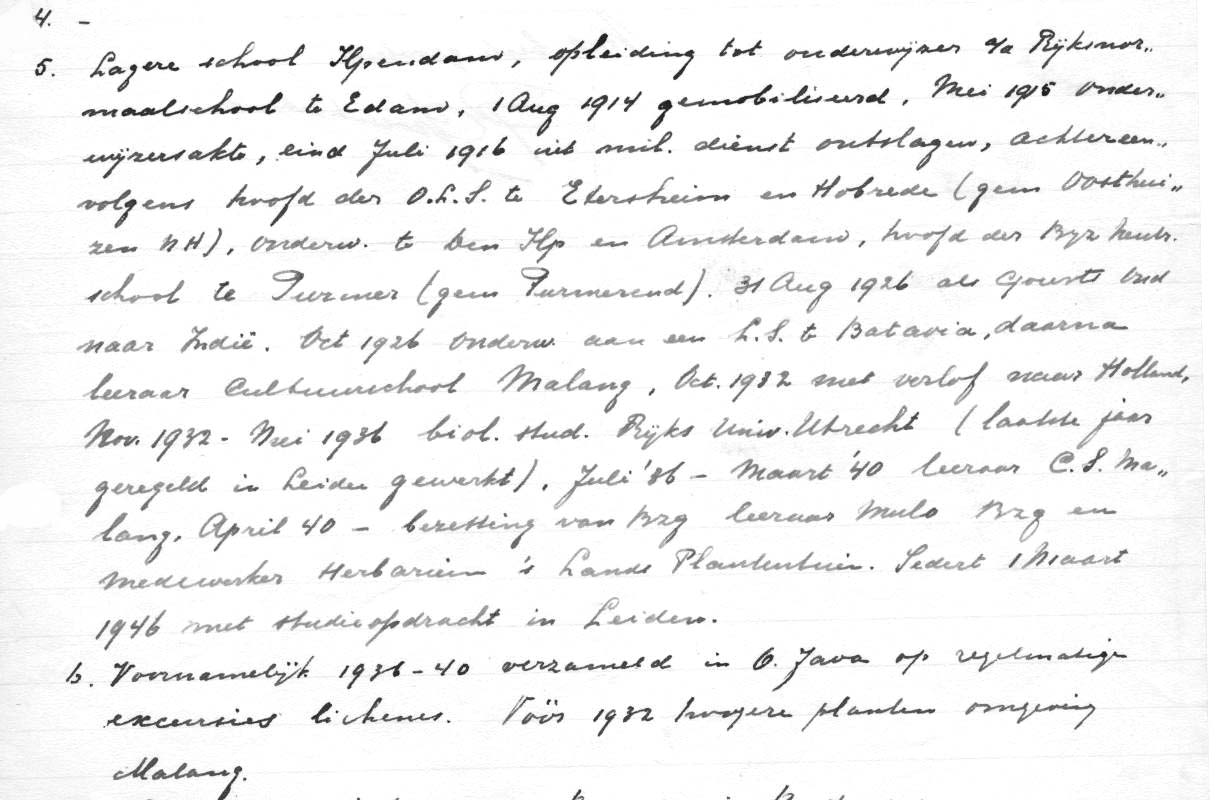 4. –
5. Lagere school Ilpendam, opleiding tot onderwijzer a/d Rijksnor„
maalschool te Edam, 1 Aug 1914 gemobiliseerd, Mei 1915 onder„
wijzersakte, eind Juli 1916 uit mil. dienst ontslagen, achtereen„
volgens hoofd der O.L.S. te Etersheim en Hobrede (gem Oosthui„
zen NH), onderw. te Den Ilp en Amsterdam, hoofd der Byz Neutr.
school te Purmer (gem Purmerend). 31 Aug 1926 als Gouvts Ond
naar Indië. Oct 1926 onderw. aan een L.S. te Batavia, daarna
leeraar Cultuurschool Malang, Oct. 1932 met verlof naar Holland,
Nov. 1932 - Mei 1936 biol. stud. Rijks Univ. Utrecht (laatste jaar
geregeld in Leiden gewerkt), Juli '36 – Maart '40 leeraar C.S. Ma„
lang. April 40 – bezetting van Bzg leeraar Mulo Bzg en
medewerker Herbarium 's Lands Plantentuin. Sedert 1 Maart
1946 met studieopdracht in Leiden.
6. Voornamelijk 1936-40 verzameld in O. Java op regelmatige
excursies lichenes. Vóór 1932 hoogere planten omgeving
Malang.